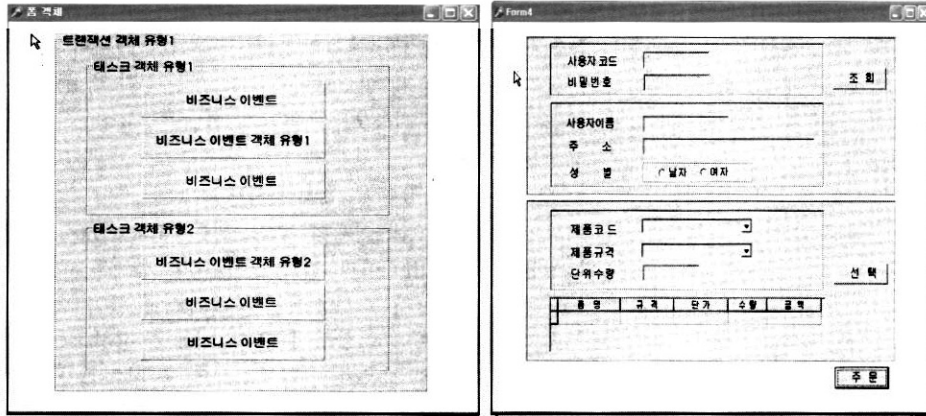 폼 객체
트랜잭션 객체 유형1
태스크 객체 유형1
비즈니스 이벤트
비즈니스 이벤트 객체 유형1
비즈니스 이벤트
태스크 객체 유형2
비즈니스 이벤트 객체 유형2
비즈니스 이벤트
비즈니스 이벤트
Form4
사용자 코드
비밀번호
조 회
사용자이름
주 소
성 별
남자 여자
제품코드
제품규격
단위수량
선 택
품 명 규 격 단 가 수 량 금 액
주 문